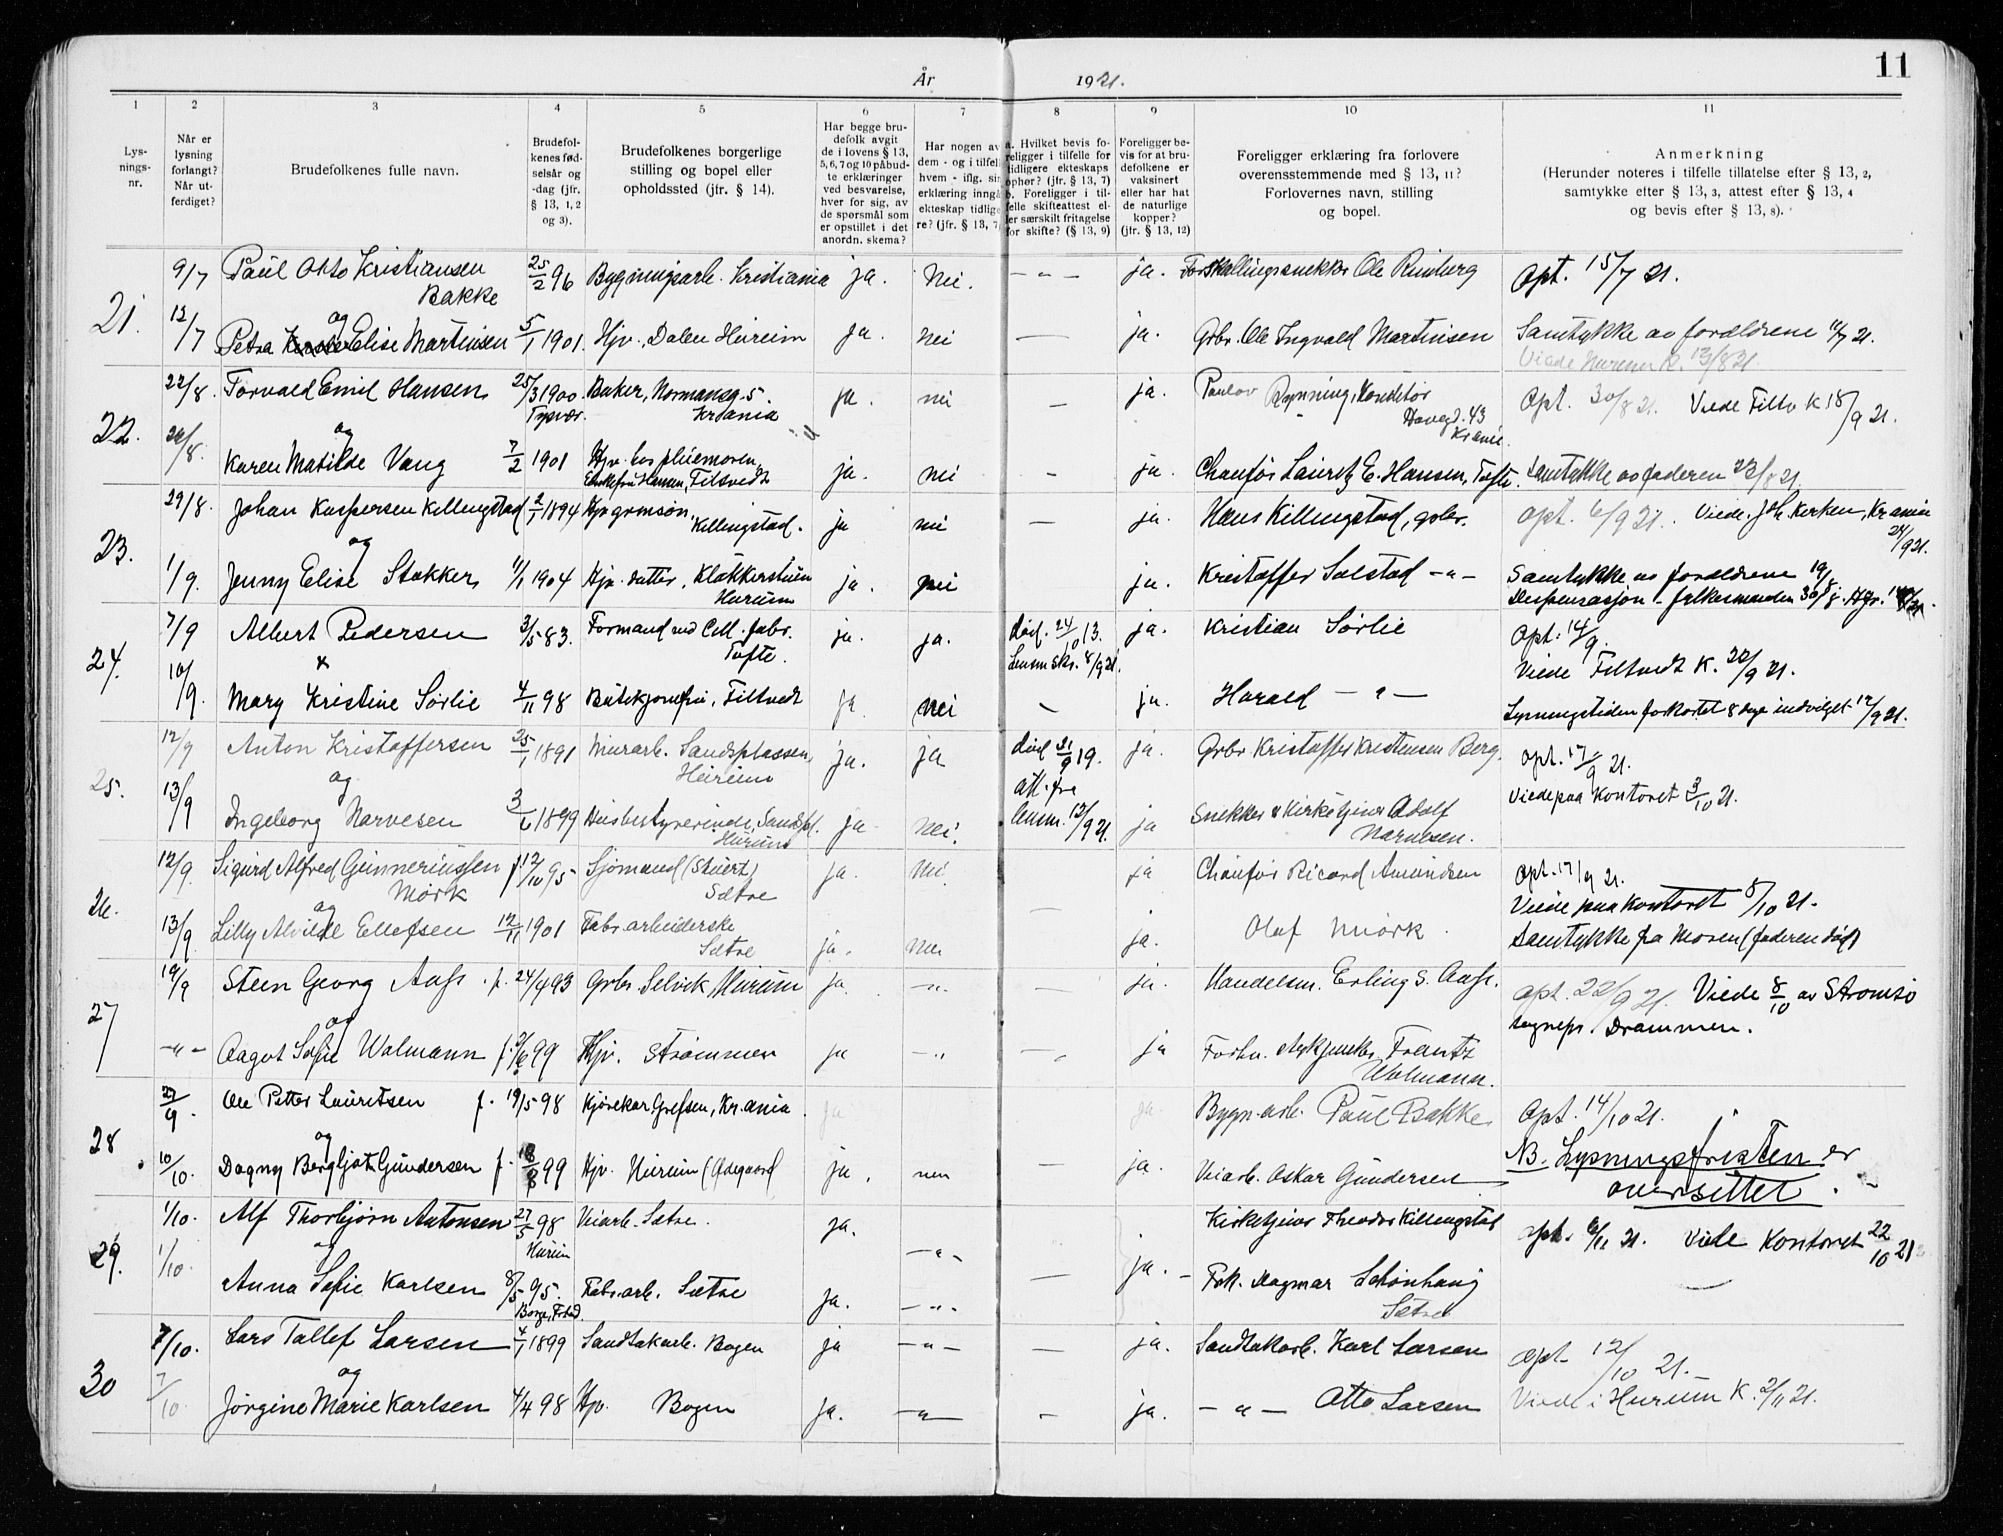 11
År 1921.
1 2 3 4 5 6 7 8 9 10 11
Lys-
nings-
nr.
Når er
lysning
forlangt?
Når ut-
ferdiget?
Brudefolkenes fulle navn.
Brudefol-
kenes fød-
selsår og
-dag (jfr.
§ 13, 1, 2
og 3).
Brudefolkenes borgerlige
stilling og bopel eller
opholdssted (jfr. § 14).
Har begge bru-
defolk avgit
de i lovens § 13,
5, 6, 7 og 10 påbud-
te erklæringer
ved besvarelse,
hver for sig, av
de spørsmål som
er opstillet i det
anordn. skema?
Har nogen av
dem - og i tilfell
hvem - iflg. sin
erklæring inngå
ekteskap tidlige
re? (jfr. § 13, 7
a. Hvilket bevis fo-
religger i tilfelle for
tidligere ekteskaps
ophør? (jfr. § 13, 7)
b. Foreligger i til-
felle skifteattest el-
ler særskilt fritagelse
for skifte? (§ 13, 9)
Foreligger be-
vis for at bru-
defolkene er
vaksinert
eller har hat
de naturlige
kopper?
(jfr. § 13, 12)
Foreligger erklæring fra forlovere
overensstemmende med § 13, 11?
Forlovernes navn, stilling
og bopel.
Anmerkning
(Herunder noteres i tilfelle tillatelse efter § 13, 2,
samtykke efter § 13, 3, attest efter § 13, 4
og bevis efter § 13, 8).
21. 9/7 Paul Otto Kristiansen 25/2 96 Bygningsarb. Kristiania ja. Nei. — " — ja. Ole Rimberg Opt. 15/7 21.
Bakke
12/7 og
Petra Elise Martinsen 5/1 1901. Hjv., Dalen Hurum ja. nei — ja. Grbr. Ole Ingvald Martinsen Samtykke av forældrene 12/7 21.
Viede Hurum K. 13/8 21.
22. 22/8. Torvald Emil Hansen 25/3 1900. Baker, Normansg. 5. ja. nei — ja. Bynning, Konditor Opt. 30/8 21. Viede Filtv K 18/9 21.
Tysvær. Krania 43
Krania.
24/8. og
Karen Matilde Vang 7/2 1901 Hjv. hos pleiemoren, ja. nei - ja. Chauffør Lauritz E. Hansen, Tofte. Samtykke av faderen 23/8 21.
Hansen, Filtvedt
23. 29/8. Johan Kaspersen Killingstad 2/1 1894 Killingstad. ja nei — ja. Hans Killingstad, grbr. Opt. 6/9 21. Viede. Joh. Kirken, Krania
24/9 21.
1/9. og
Jenny Elise Stokker 11/1 1904 Hjv. datter, Klokkerstuen ja. nei ja. Kristoffer Solstad — " — Samtykke av forældrene 19/8
Hurum
Dispensasjon 30/8.
24. 7/9 Albert Pedersen 3/5 83. Formand ved Cell. fabr. ja. ja. død. 24/10 13. ja. Kristian Sørlie Opt. 14/9.
Tofte. Lensm skr. 8/9 21.
10/9. x Viede Filtvedt K. 22/9 21.
Mary Kristine Sørlie 4/11 98 Butikjomfru, Filtvedt ja nei - ja. Harald — " — Lysningstiden forkortet 8 dage indvilget 12/9 21.
25. 12/9 Anton Kristoffersen 25/1 1891 Murarb. Sandsplassen, ja. ja død 21/9 19. ja. Grbr Kristoffer Kristensen Berg. Opt. 17/9 21.
Hurum
13/9 og att. fra Viede paa Kontoret 3/10 21.
Ingeborg Narvesen 3/6 1899 Husbestyrerinde, Sandspl. ja nei. lensm. 12/9 21. ja Snekker & Kirketjener Adolf
Hurum Narvesen.
26. 12/9. Sigurd Alfred Gunneriussen f. 12/10 95 Sjømand (Stuert) ja. nei ja Chauffør Ricard Amundsen Opt. 17/9 21.
Mørk Sætre
Viede paa Kontoret 8/10 21.
13/9 og
Lilly Alvilde Ellefsen 12/11 1901 Fabr. arbeiderske ja. nei — ja. Olaf Mørk. Samtykke fra Moren (faderen død)
Sætre
27 19/9 Steen Georg Aass. f. 24/4 93 Grbr. Selvik, Hurum ja. — " — ja. Handelsm. Erling S. Aass. Opt. 22/9 21. Viede 8/10 av Strømsø
sogneps. Drammen.
og
— " — Aagot Sofie Wolmann f. 2/6 99 Hjv. Strømmen ja — " — ja Frantz
Wolmann.
28 27/9. Ole Petter Lauritsen f. 19/5 98 Kjørekar. Grefsen, Krania. ja ja. Bygn. arb. Paul Bakke Opt. 14/10 21.
10/10. og
Dagny Bergljot Gundersen f. 18/8 99 Hjv. Hurum (Ødegaard ja. nei — ja. Veiarb. Oskar Gundersen NB. Lysningsfristen er
oversittet.
29. 1/10. Alf Thorbjørn Antonsen 27/5 98 Veiarb. Sætre. ja. Kirketjener Theodor Killingstad opt. 21. Viede Kontoret 22/10 21
Hurum
1/10. og — " — ja.
Anna Sofie Karlsen 8/5 95. Fabr. arb. Sætre ja. — " — — Frk. Dagmar Schønhaug
Borge, Frstad. Sætre
30 7/10. Lars Tallef Larsen 4/1 1899 Sandtakarb. Bogen ja — " — — ja. Sandtakarb. Karl Larsen Opt. 12/10 21.
7/10 og
Jørgine Marie Karlsen 4/4 98 Hjv. Bogen ja. — " — - ja. — " — Otto Larsen Viede i Hurum K. 2/11 21.